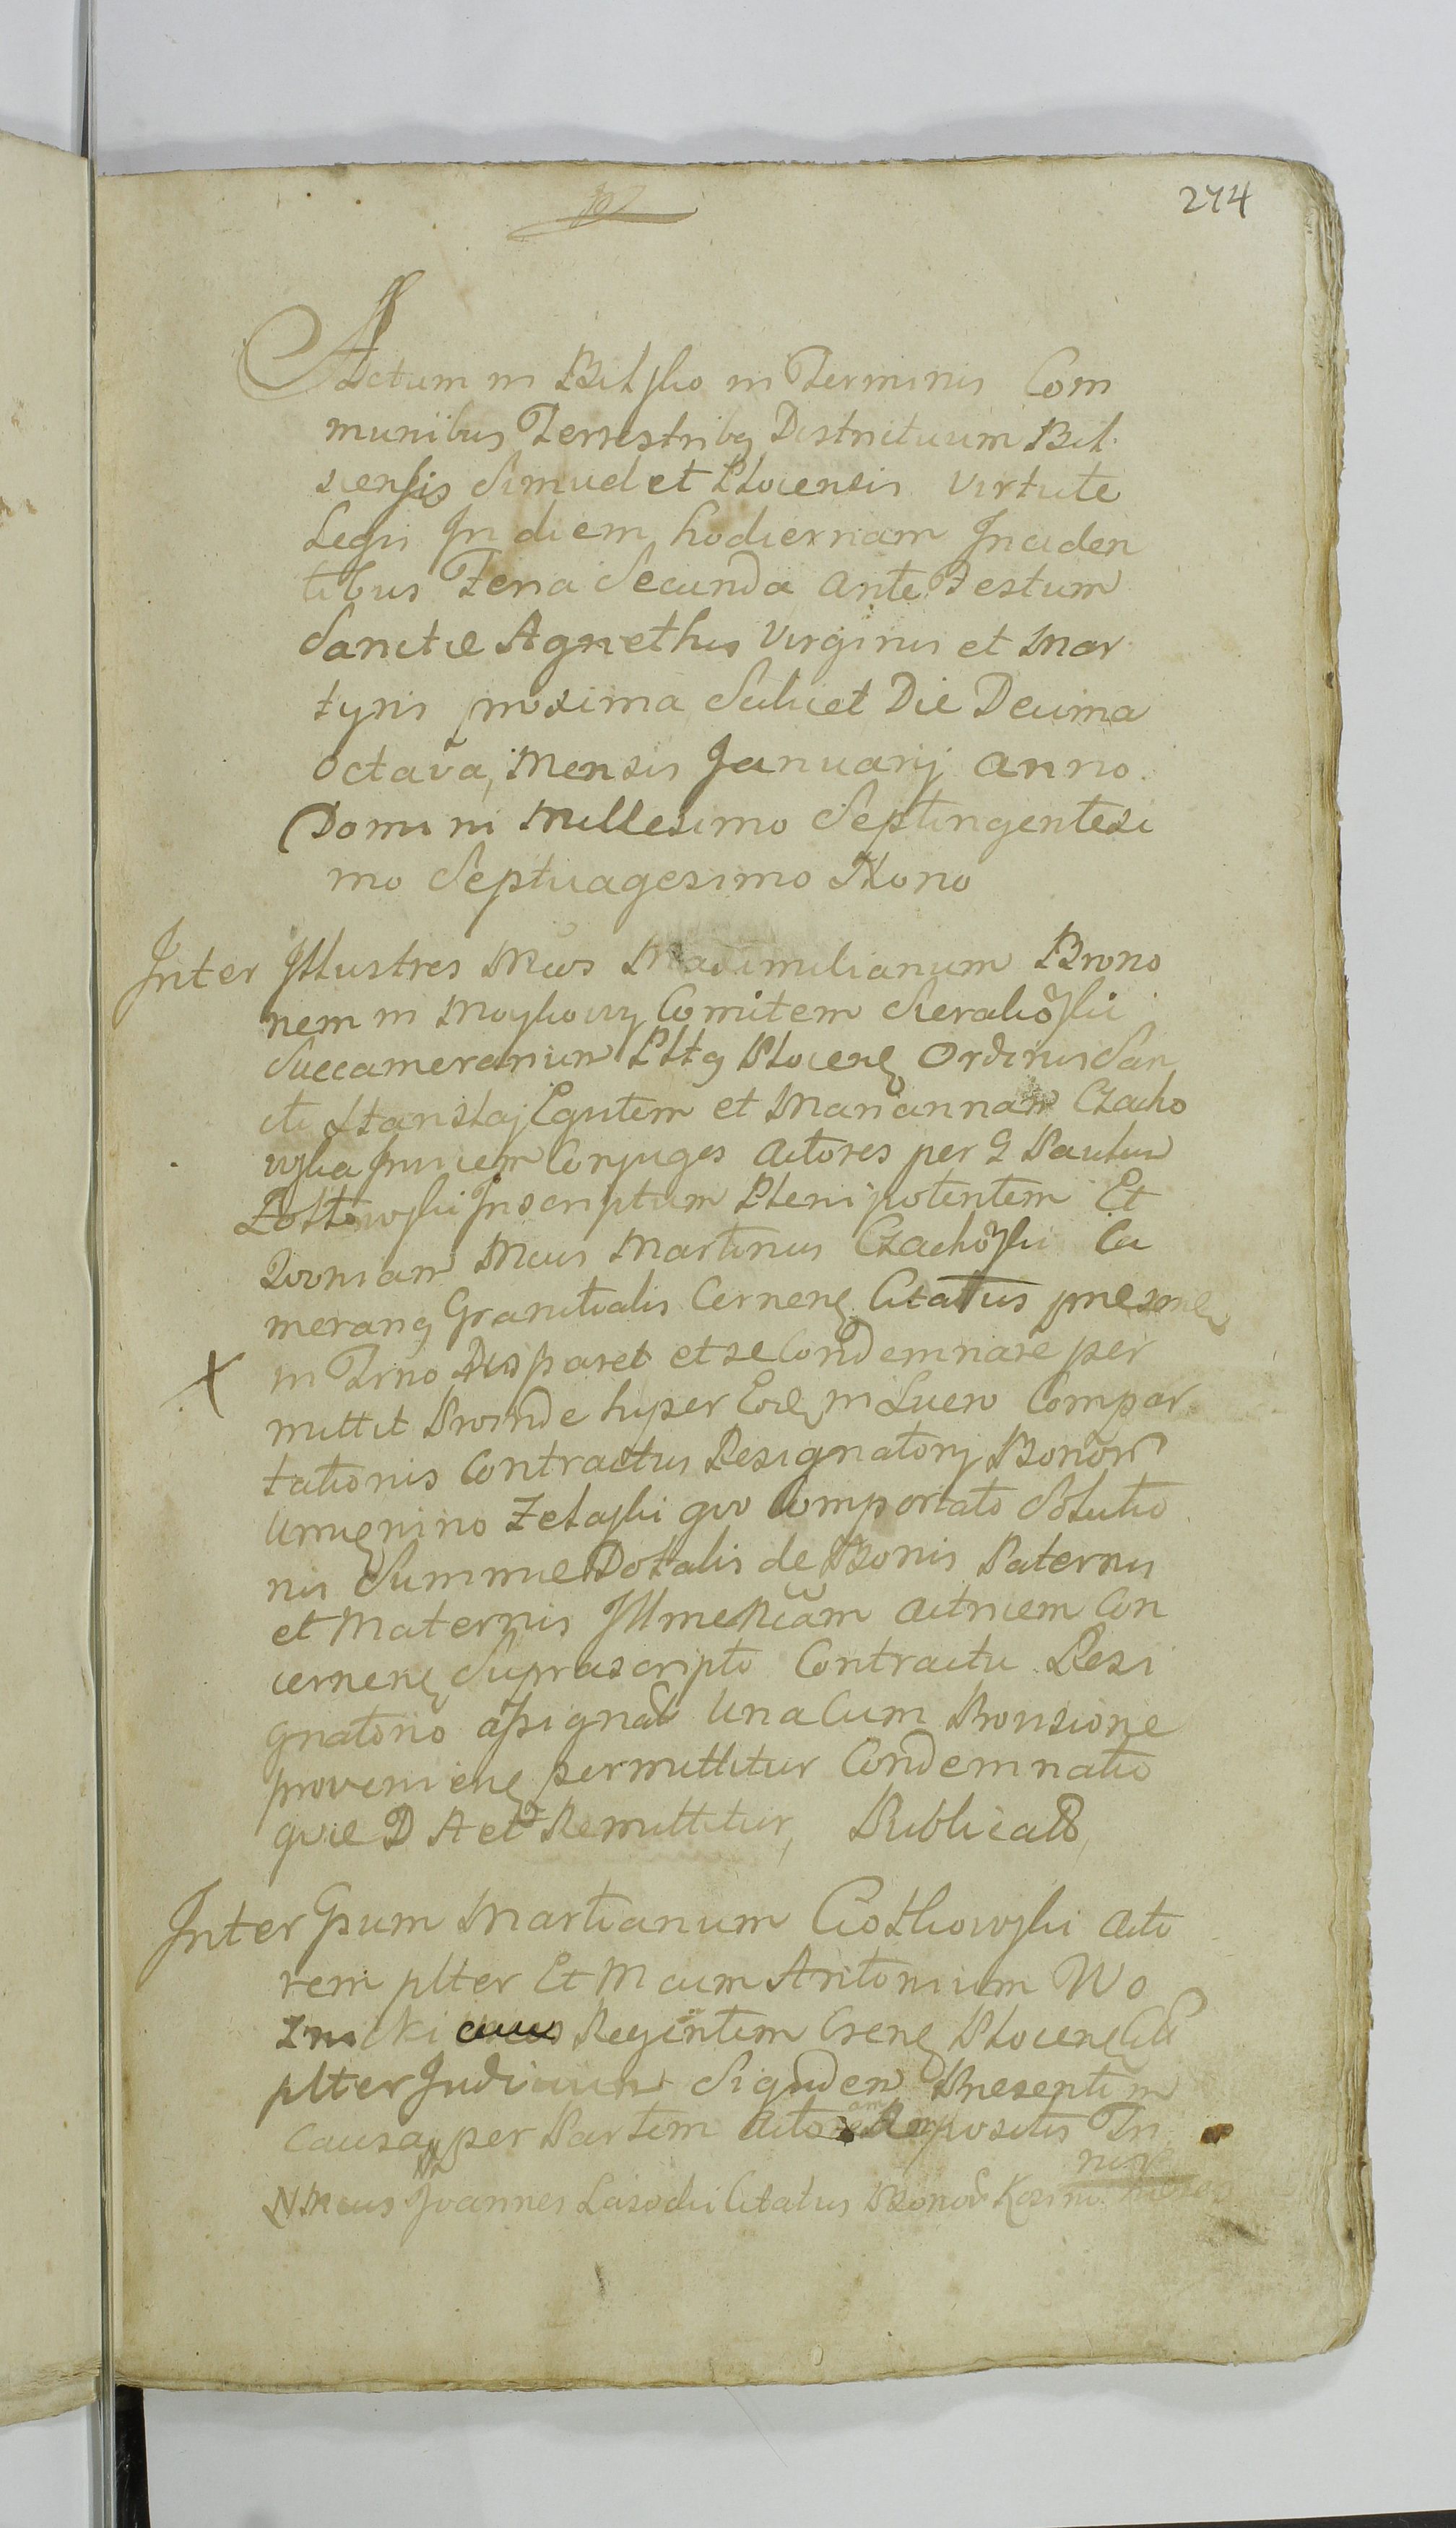 274
Actum in Bielsko in Terminis Com
munibus Terrestribg Districtuum Biel
scensis Simuel et Plocensis virtute
Legis In diem hodiernam Inciden
tibus Feria Secunda ante Festum
Sanctæ Agnethis Virginis et Mar
tyris proxima Scilicet Die Decima
octava, Mensis Januarij Anno
Domini Millesimo Septingentesi
mo Septuagesimo Nono
Inter Illustres Mcos Maximilianum Brono
nem in Comitem Sierakoski
Succamerarium Plocens Ordinis San
cti Stanislaj Equitem et Mariannam Czacho
wska Invicem Conjuges Actores per G Paulum
Inscriptum Plenipotentem Et
Quoniam Mcus Martinus Czachoski Ca
merarig Granitialis Cernens Citatus præsens
in Trno Disparet et se Condemnare per
mittit Proinde super Eode in Lucro Compor
tationis Contractus Resignatorij Bonor
Zelaski quo Comportato Solutio
nis Summæ Dotalis de Bonis Paternis
et Maternis Illme Mcam Actricem Con
cernens Suprascripto Contractu Resi
gnatorio assignat Una Cum Provisione
proveniens permittitur Condemnatio
quæ D A et Remittitur, Publicat
Inter Gsum Martianum Ciotkowski Acto
rem plter Et Mcum Antonium Wo
Regentem Crens Plocens Citt
plter Judicium Siquidem Præsenti in
Causa per Partem Repositis In
N. Mcus Joannes Lasocki Citatus Bonor